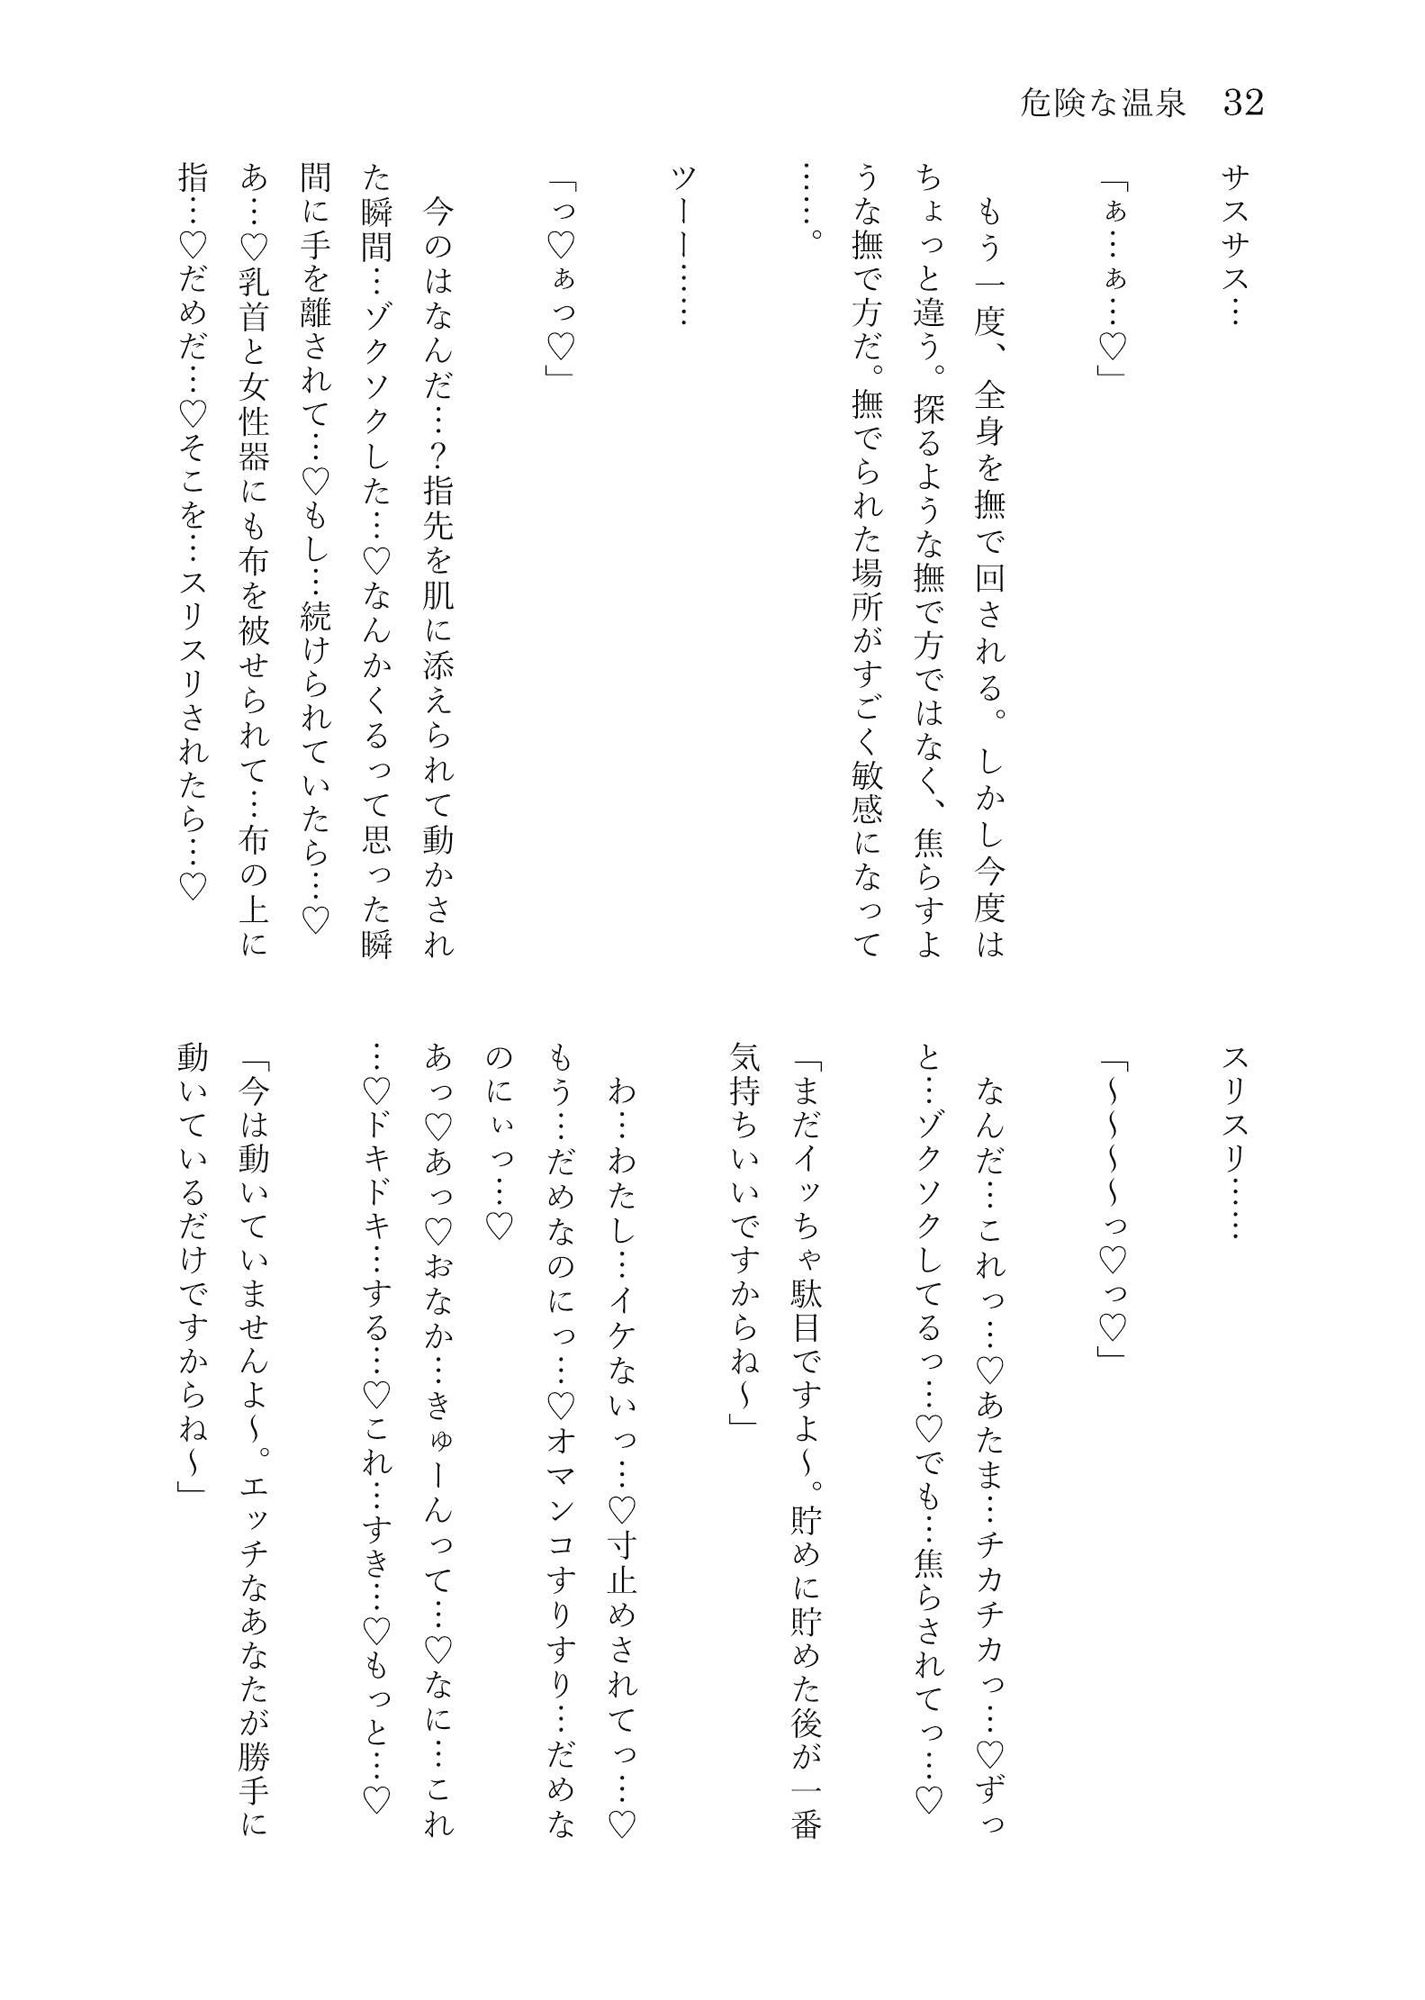 危険な温泉 32
サスサス…
「ぁ…ぁ…♡」
もう一度、全身を撫で回される。しかし今度は
ちょっと違う。探るような撫で方ではなく、焦らすよ
うな撫で方だ。撫でられた場所がすごく敏感になって
……。
ツーー……
「っ♡ぁっ♡」
今のはなんだ…？指先を肌に添えられて動かされ
た瞬間…ゾクソクした…♡なんかくるって思った瞬
間に手を離されて…♡もし…続けられていたら…♡
あ…♡乳首と女性器にも布を被せられて…布の上に
指…♡だめだ…♡そこを…スリスリされたら…♡
スリスリ……
「～～～～っ♡っ♡」
なんだ…これっ…♡あたま…チカチカっ…♡ずっ
と…ゾクソクしてるっ…♡でも…焦らされてっ…♡
「まだイッちゃ駄目ですよ～。貯めに貯めた後が一番
気持ちいいですからね～」
わ…わたし…イケないっ…♡寸止めされてっ…♡
もう…だめなのにっ…♡オマンコすりすり…だめな
のにぃっ…♡
あっ♡あっ♡おなか…きゅーんって…♡なに…これ
…♡ドキドキ…する…♡これ…すき…♡もっと…♡
「今は動いていませんよ～。エッチなあなたが勝手に
動いているだけですからね～」